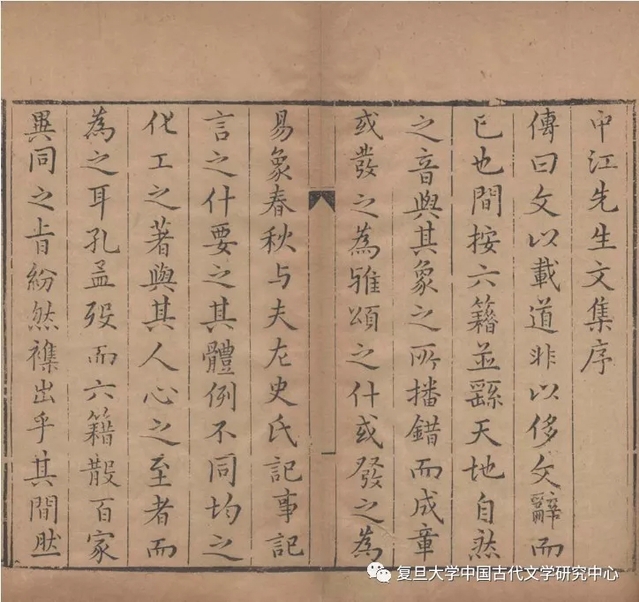 中江先生文集序
傳曰文以載道非以侈文辭而
已也間按六籍並繇天地自然
之音與其象之所播錯而成章
或發之為雅頌之什或發之為
易象春秋与夫左史氏記事記
言之什要之其體例不同均之
化工之著與其人心之至者而
為之耳孔孟歿而六籍散百家
異同之旨紛然襍出乎其間然
复旦大学中国古代文学研究中心